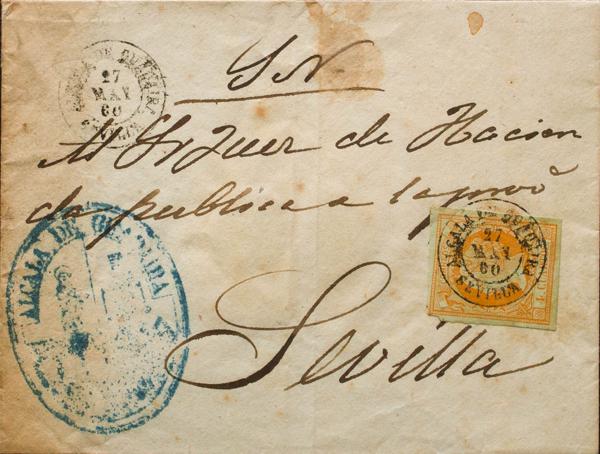 ALCALA DE GUADAIRA
27
MAY
60
SEVILLA
S N
Al Sr Juez de Hacien
da publica de la provª
ALCALA DE GUADAIRA
27
MAY
60
SEVILLA
ALCALA DE GUADAIRA
Sevilla